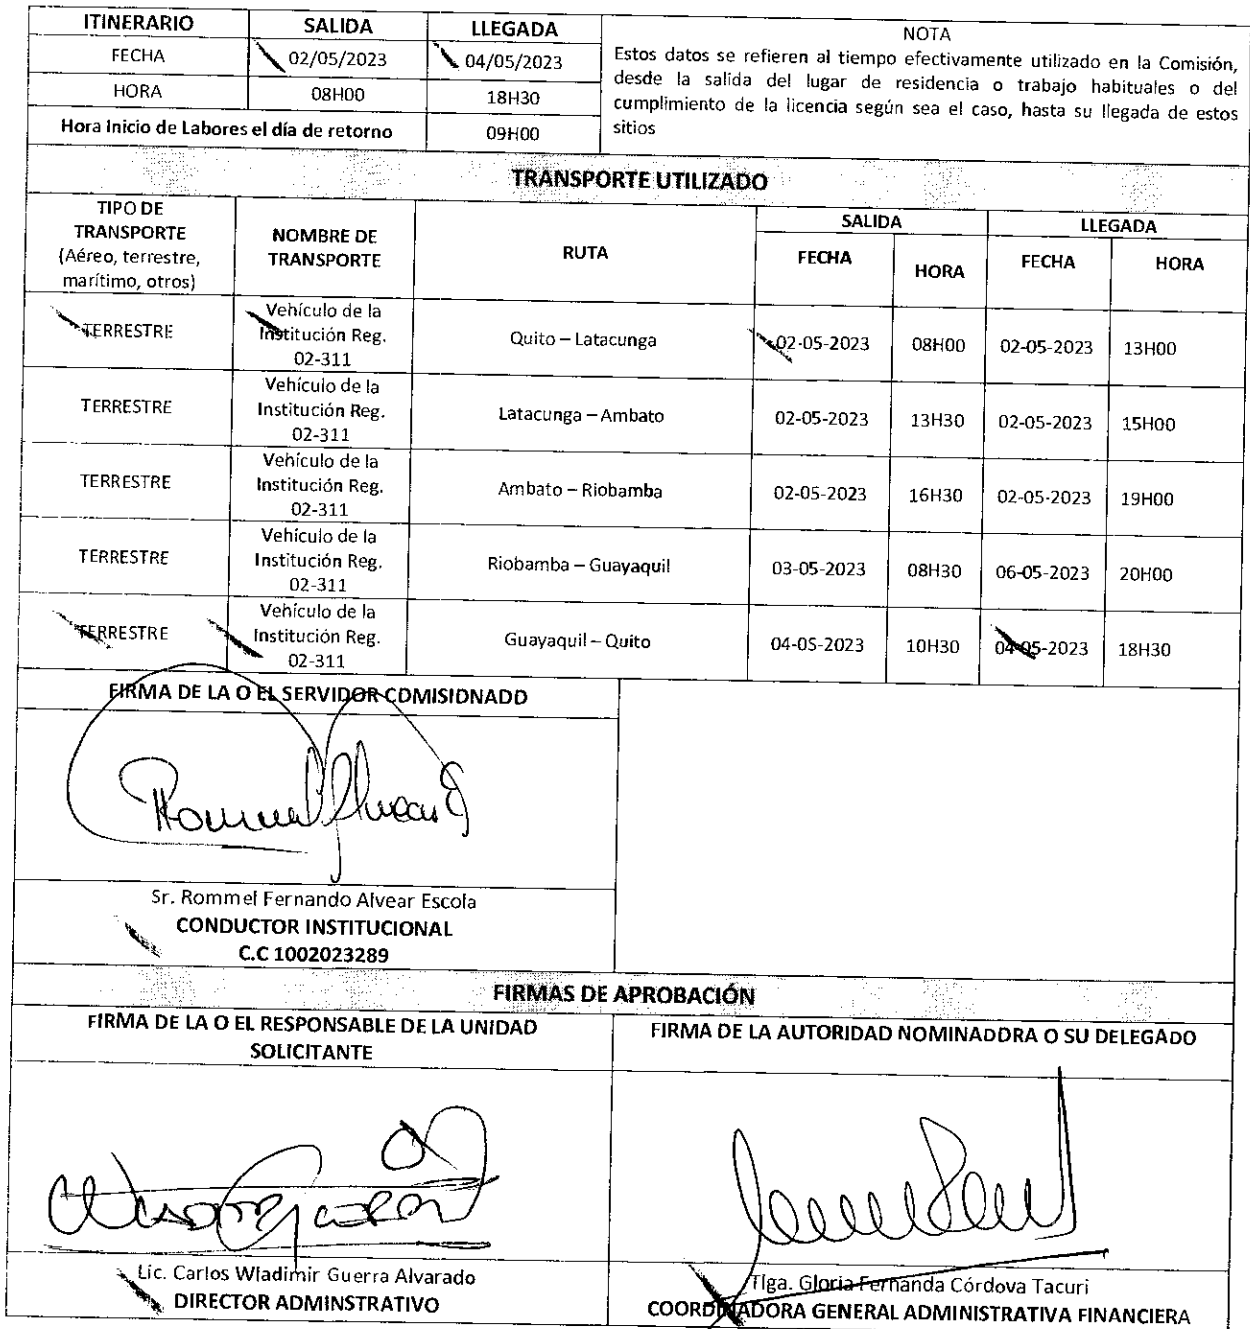 ITINERARIO SALIDA LLEGADA
FECHA 02/05/2023 04/05/2023
HORA 08H00 18H30
Hora Inicio de Labores el día de retorno 09H00
NOTA
Estos datos se refieren al tiempo efectivamente utilizado en la Comisión,
desde la salida del lugar de residencia o trabajo habituales o del
cumplimiento de la licencia según sea el caso, hasta su llegada de estos
sitios
TRANSPORTE UTILIZADO
TIPO DE
TRANSPORTE
(Aéreo, terrestre,
marítimo, otros)
NOMBRE DE
TRANSPORTE
RUTA
SALIDA
LLEGADA
FECHA HORA FECHA HORA
TERRESTRE
Vehículo de la
Institución Reg.
02-311
Quito – Latacunga 02-05-2023 08H00 02-05-2023 13H00
TERRESTRE
Vehículo de la
Institución Reg.
02-311
Latacunga – Ambato 02-05-2023 13H30 02-05-2023 15H00
TERRESTRE
Vehículo de la
Institución Reg.
02-311
Ambato – Riobamba 02-05-2023 16H30 02-05-2023 19H00
TERRESTRE
Vehículo de la
Institución Reg.
02-311
Riobamba – Guayaquil 03-05-2023 08H30 06-05-2023 20H00
TERRESTRE
Vehículo de la
Institución Reg.
02-311
Guayaquil – Quito 04-05-2023 10H30 04-05-2023 18H30
FIRMA DE LA O EL SERVIDOR COMISIDNADD
Sr. Rommel Fernando Alvear Escola
CONDUCTOR INSTITUCIONAL
C.C 1002023289
FIRMAS DE APROBACIÓN
FIRMA DE LA O EL RESPONSABLE DE LA UNIDAD
SOLICITANTE
FIRMA DE LA AUTORIDAD NOMINADDRA O SU DELEGADO
Lic. Carlos Wladimir Guerra Alvarado
DIRECTOR ADMINSTRATIVO
Tlga. Gloria Fernanda Córdova Tacuri
COORDINADORA GENERAL ADMINISTRATIVA FINANCIERA